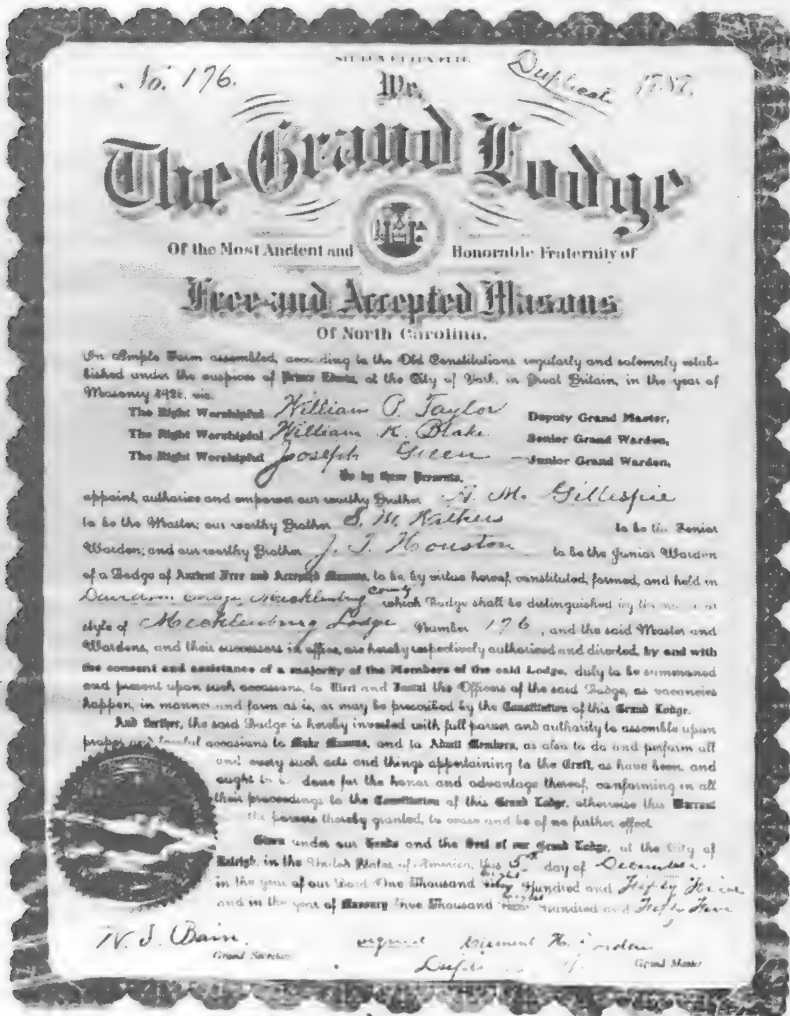 No. 176.
Duplicate 1787.
We,
The Grand Lodge
Of the Most Ancient and Honorable Fraternity of
Free and Accepted Masons
Of North Carolina.
In Ample Form assembled, according to the Old Constitutions regularly and solemnly estab-
lished under the auspices of Prince Edwin, at the City of York, in Great Britain, in the year of
Masonry 4926, viz.
The Right Worshipful William P. Taylor Deputy Grand Master,
The Right Worshipful William K. Blake Senior Grand Warden,
The Right Worshipful Joseph Green Junior Grand Warden,
Do by these Presents,
appoint, authorize and empower our worthy Brother M. Gillespie
to be the Master; our worthy Brother S. W. to be the Senior
Warden; and our worthy Brother J. T. Houston to be the Junior Warden
of a Lodge of Ancient Free and Accepted Masons, to be by virtue hereof, constituted, formed, and held in
Davidson College Mecklenburg County which Lodge shall be distinguished by the name or
style of Mecklenburg Lodge Number 176, and the said Master and
Wardens, and their successors in office, are hereby respectively authorized and directed, by and with
the consent and assistance of a majority of the Members of the said Lodge, duly to be summoned
and present upon such occasions, to Elect and Install the Officers of the said Lodge, as vacancies
happen, in manner and form as is, or may be prescribed by the Constitution of this Grand Lodge.
And further, the said Lodge is hereby invested with full power and authority to assemble upon
proper and lawful occasions to Make Masons, and to Admit Members, as also to do and perform all
and every such acts and things appertaining to the Craft, as have been, and
ought to be done for the honor and advantage thereof, conforming in all
their proceedings to the Constitution of this Grand Lodge, otherwise this Warrant
the powers thereby granted, to cease and be of no further effect.
Given under our Hands and the Seal of our Grand Lodge, at the City of
Raleigh, in the United States of America, this 5th day of December
in the year of our Lord One Thousand Eight Hundred and Fifty
and in the year of Masonry Five Thousand Eight Hundred and Fifty Five
W. T. Bain. signed
Grand Secretary Grand Master